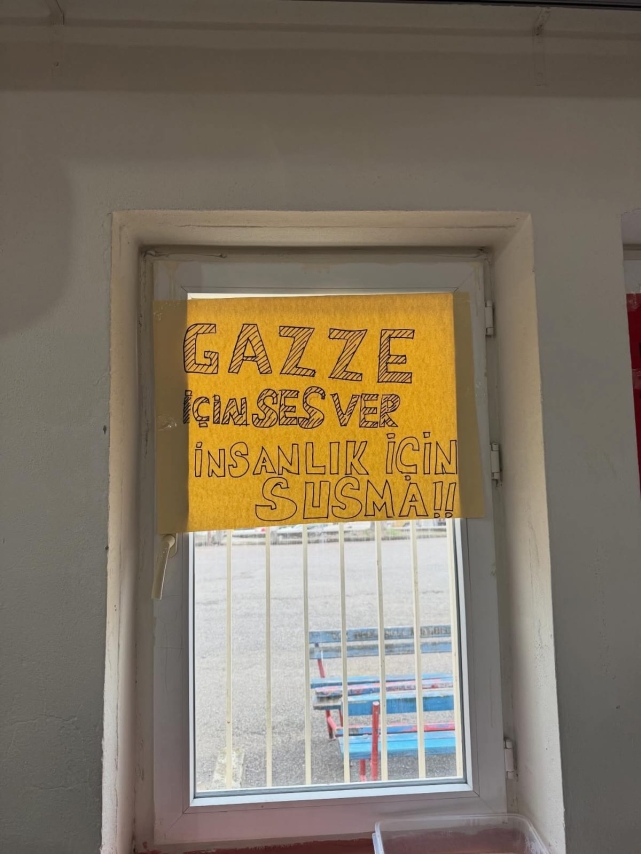 GAZZE
İÇİN SES VER
İNSANLIK İÇİN
SUSMA!!